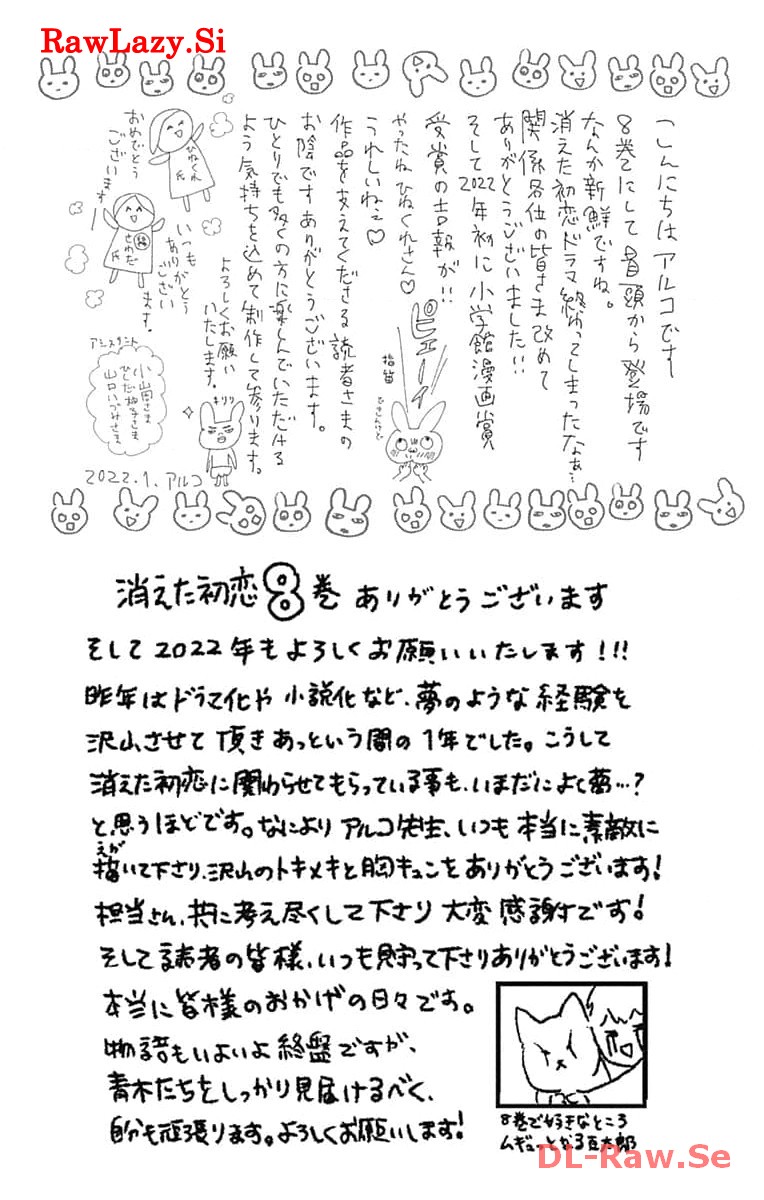 RawLazy.Si
こんにちはアルコです
8巻にして冒頭から登場です
なんか新鮮ですね。
消えた初恋ドラマ終わってしまったなぁ…
関係各位の皆さま改めて
ありがとうございました!!
そして2022年初に小学館漫画賞
受賞の吉報が!!
やったねひねくれさん♡
うれしいねっ♡
作品を支えてくださる読者さまの
お陰です ありがとうございます。
ひとりでも多くの方に楽しんでいただける
よう気持ちを込めて制作して参ります。
よろしくお願い
いたします。
ピューイ
指笛
できんけど
キリッ
ひねくれ
氏
おめでとう
ございますー
さわだ
氏
いつも
ありがとう
ござい
ます。
アシスタント
小山田さま
山口いづみさま
2022.1. アルコ
消えた初恋8巻 ありがとうございます
そして2022年もよろしくお願いいたします!!!
昨年はドラマ化や小説化など、夢のような経験を
沢山させて頂きあっという間の1年でした。こうして
消えた初恋に関わらせてもらっている事も、いまだによく夢…?
と思うほどです。なにより アルコ先生、いつも本当に素敵に
えが
描いて下さり、沢山のトキメキと胸キュンをありがとうございます!
担当さん、共に考え尽くして下さり 大変感謝です!
そして読者の皆様、いつも見守って下さりありがとうございます!
本当に皆様のおかげの日々です。
物語もいよいよ終盤ですが、
青木たちをしっかり見届けるべく、
自分も頑張ります。よろしくお願いします!
8巻で好きなところ
ムギューとなる豆太郎
DL-Raw.Se